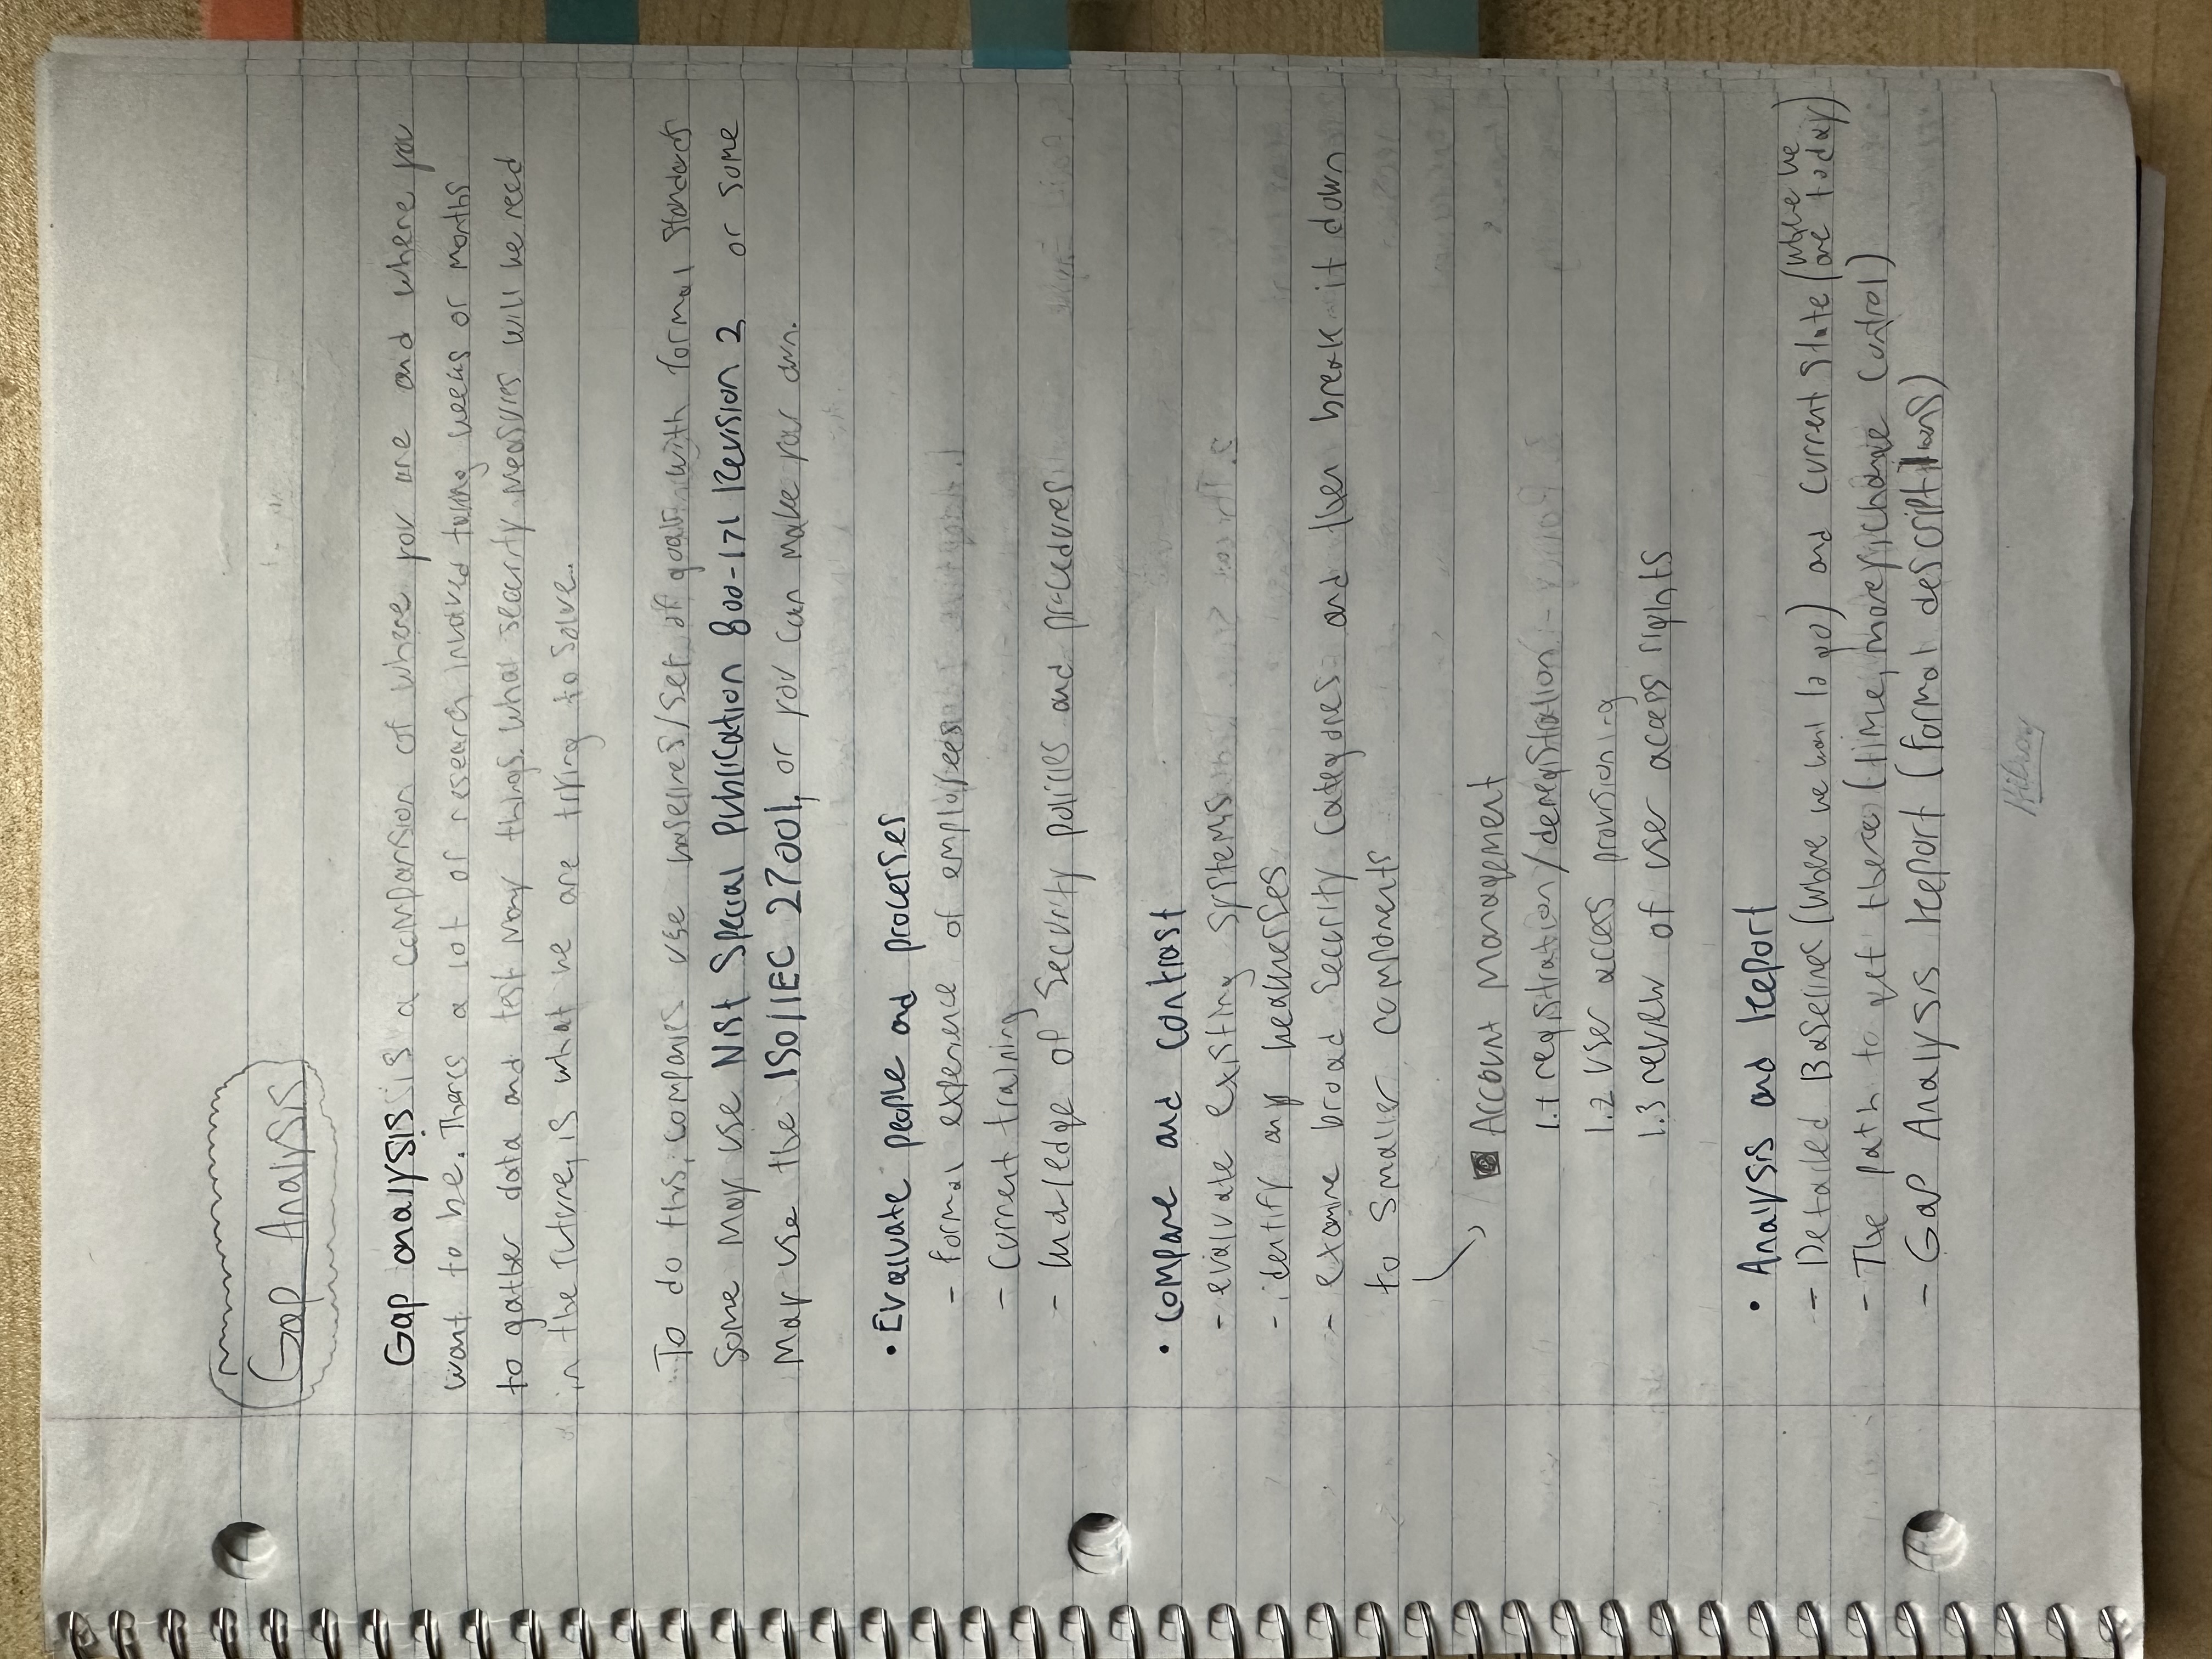 Gap Analysis
Gap analysis is a comparision of where you are and where you
want to be. Theres a lot of research involved taking weeks or months
to gather data and test many things. What security measures will we need
in the future, is what we are trying to solve.
To do this, companies use baselines/set of goals with formal standards
Some may use Nist Special Publication 800-171 Revision 2 or some
may use the ISO/IEC 27001, or you can make your own.
• Evaluate people and processes
- formal experience of employees
- Current training
- knowledge of security policies and procedures
• Compare and contrast
- evaluate existing systems
- identify any weaknesses
- examine broad security categories and then break it down
to smaller components
Account Management
1.1 registration/deregistration
1.2 User access provisioning
1.3 review of user access rights
• Analysis and Report
- Detailed Baselines (where we want to go) and current state (where we are today)
- The path to get there (time, money, change control)
- Gap Analysis Report (formal descriptions)